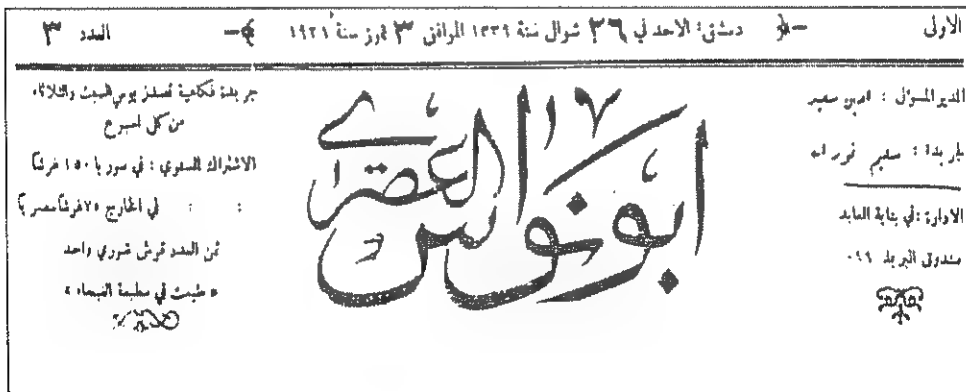 الاولى دمشق: الاحد في ٢٦ شوال سنة ١٣٣٩ الموافق ٣ تموز سنة ١٩٢١ العدد ٣
المدير المسؤل : امين سعيد
سليم
الادارة : في بناية العابد
صندوق البريد ٠٩٩
ابو نواس العصري
جريدة فكاهية تصدر يومي السبت والثلاثاء
من كل اسبوع
الاشتراك السنوي : في سوريا ١٥٠ قرشاً
: : في الخارج ٧٥ قرشاً مصرياً
ثمن العدد قرش سوري واحد
« طبعت في مطبعة الفيحاء »